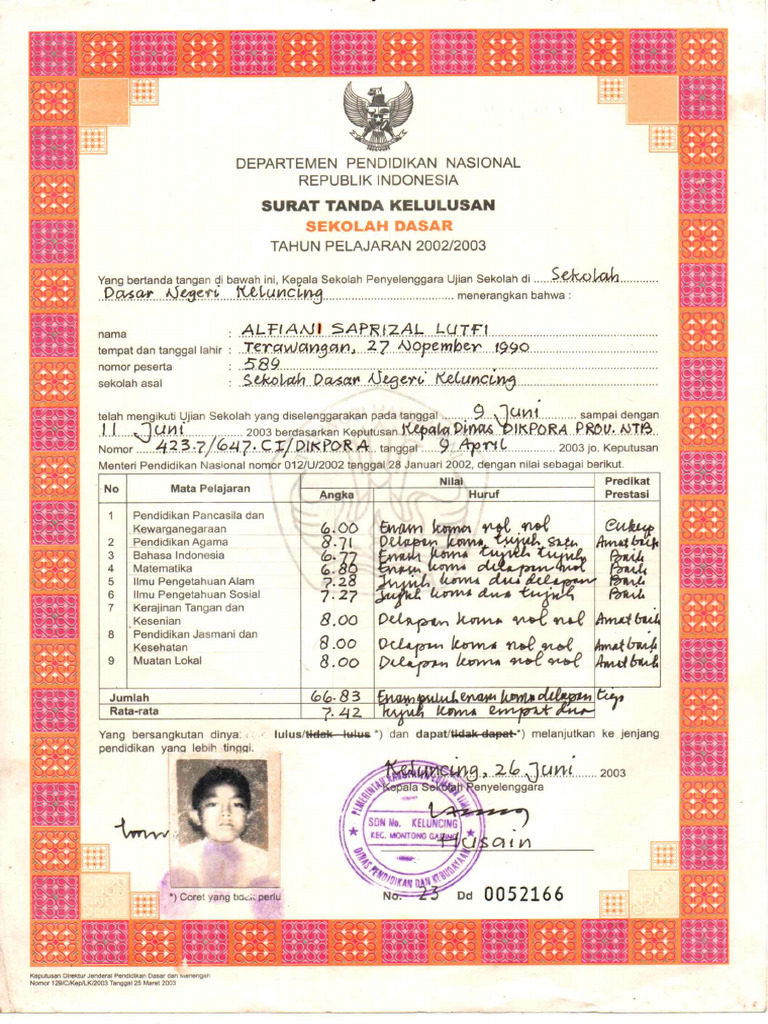 DEPARTEMEN PENDIDIKAN NASIONAL
REPUBLIK INDONESIA
SURAT TANDA KELULUSAN
SEKOLAH DASAR
TAHUN PELAJARAN 2002/2003
Yang bertanda tangan di bawah ini, Kepala Sekolah Penyelenggara Ujian Sekolah di Sekolah
Dasar Negeri Keluncing menerangkan bahwa :
nama : ALFIANI SAPRIZAL LUTFI
tempat dan tanggal lahir : Terawangan, 27 Nopember 1990
nomor peserta : 589
sekolah asal : Sekolah Dasar Negeri Keluncing
telah mengikuti Ujian Sekolah yang diselenggarakan pada tanggal 9 Juni sampai dengan
11 Juni 2003 berdasarkan Keputusan Kepala Dinas DIKPORA PROV. NTB
Nomor 423.7/647.CI/DIKPORA tanggal 9 April 2003 jo. Keputusan
Menteri Pendidikan Nasional nomor 012/U/2002 tanggal 28 Januari 2002, dengan nilai sebagai berikut.
No Mata Pelajaran Nilai Predikat Prestasi
Angka Huruf
1 Pendidikan Pancasila dan
Kewarganegaraan 6.00 Enam koma nol nol Cukup
2 Pendidikan Agama 8.71 Delapan koma tujuh satu Amat baik
3 Bahasa Indonesia 6.77 Enam koma tujuh tujuh Baik
4 Matematika 6.80 Enam koma delapan nol Baik
5 Ilmu Pengetahuan Alam 7.28 Tujuh koma dua delapan Baik
6 Ilmu Pengetahuan Sosial 7.27 Tujuh koma dua tujuh Baik
7 Kerajinan Tangan dan
Kesenian 8.00 Delapan koma nol nol Amat baik
8 Pendidikan Jasmani dan
Kesehatan 8.00 Delapan koma nol nol Amat baik
9 Muatan Lokal 8.00 Delapan koma nol nol Amat baik
Jumlah 66.83 Enam puluh enam koma delapan tiga
Rata-rata 7.42 Tujuh koma empat dua
Yang bersangkutan dinya lulus/tidak lulus *) dan dapat/tidak dapat *) melanjutkan ke jenjang
pendidikan yang lebih tinggi.
Keluncing, 26 Juni 2003
Kepala Sekolah Penyelenggara
SDN No. KELUNCING
KEC. MONTONG GADING
DINAS PENDIDIKAN DAN KEBUDAYAAN
Husain
*) Coret yang tidak perlu
No. 23 Dd 0052166
Keputusan Direktur Jenderal Pendidikan Dasar dan Menengah
Nomor 129/C/Kep/LK/2003 Tanggal 25 Maret 2003